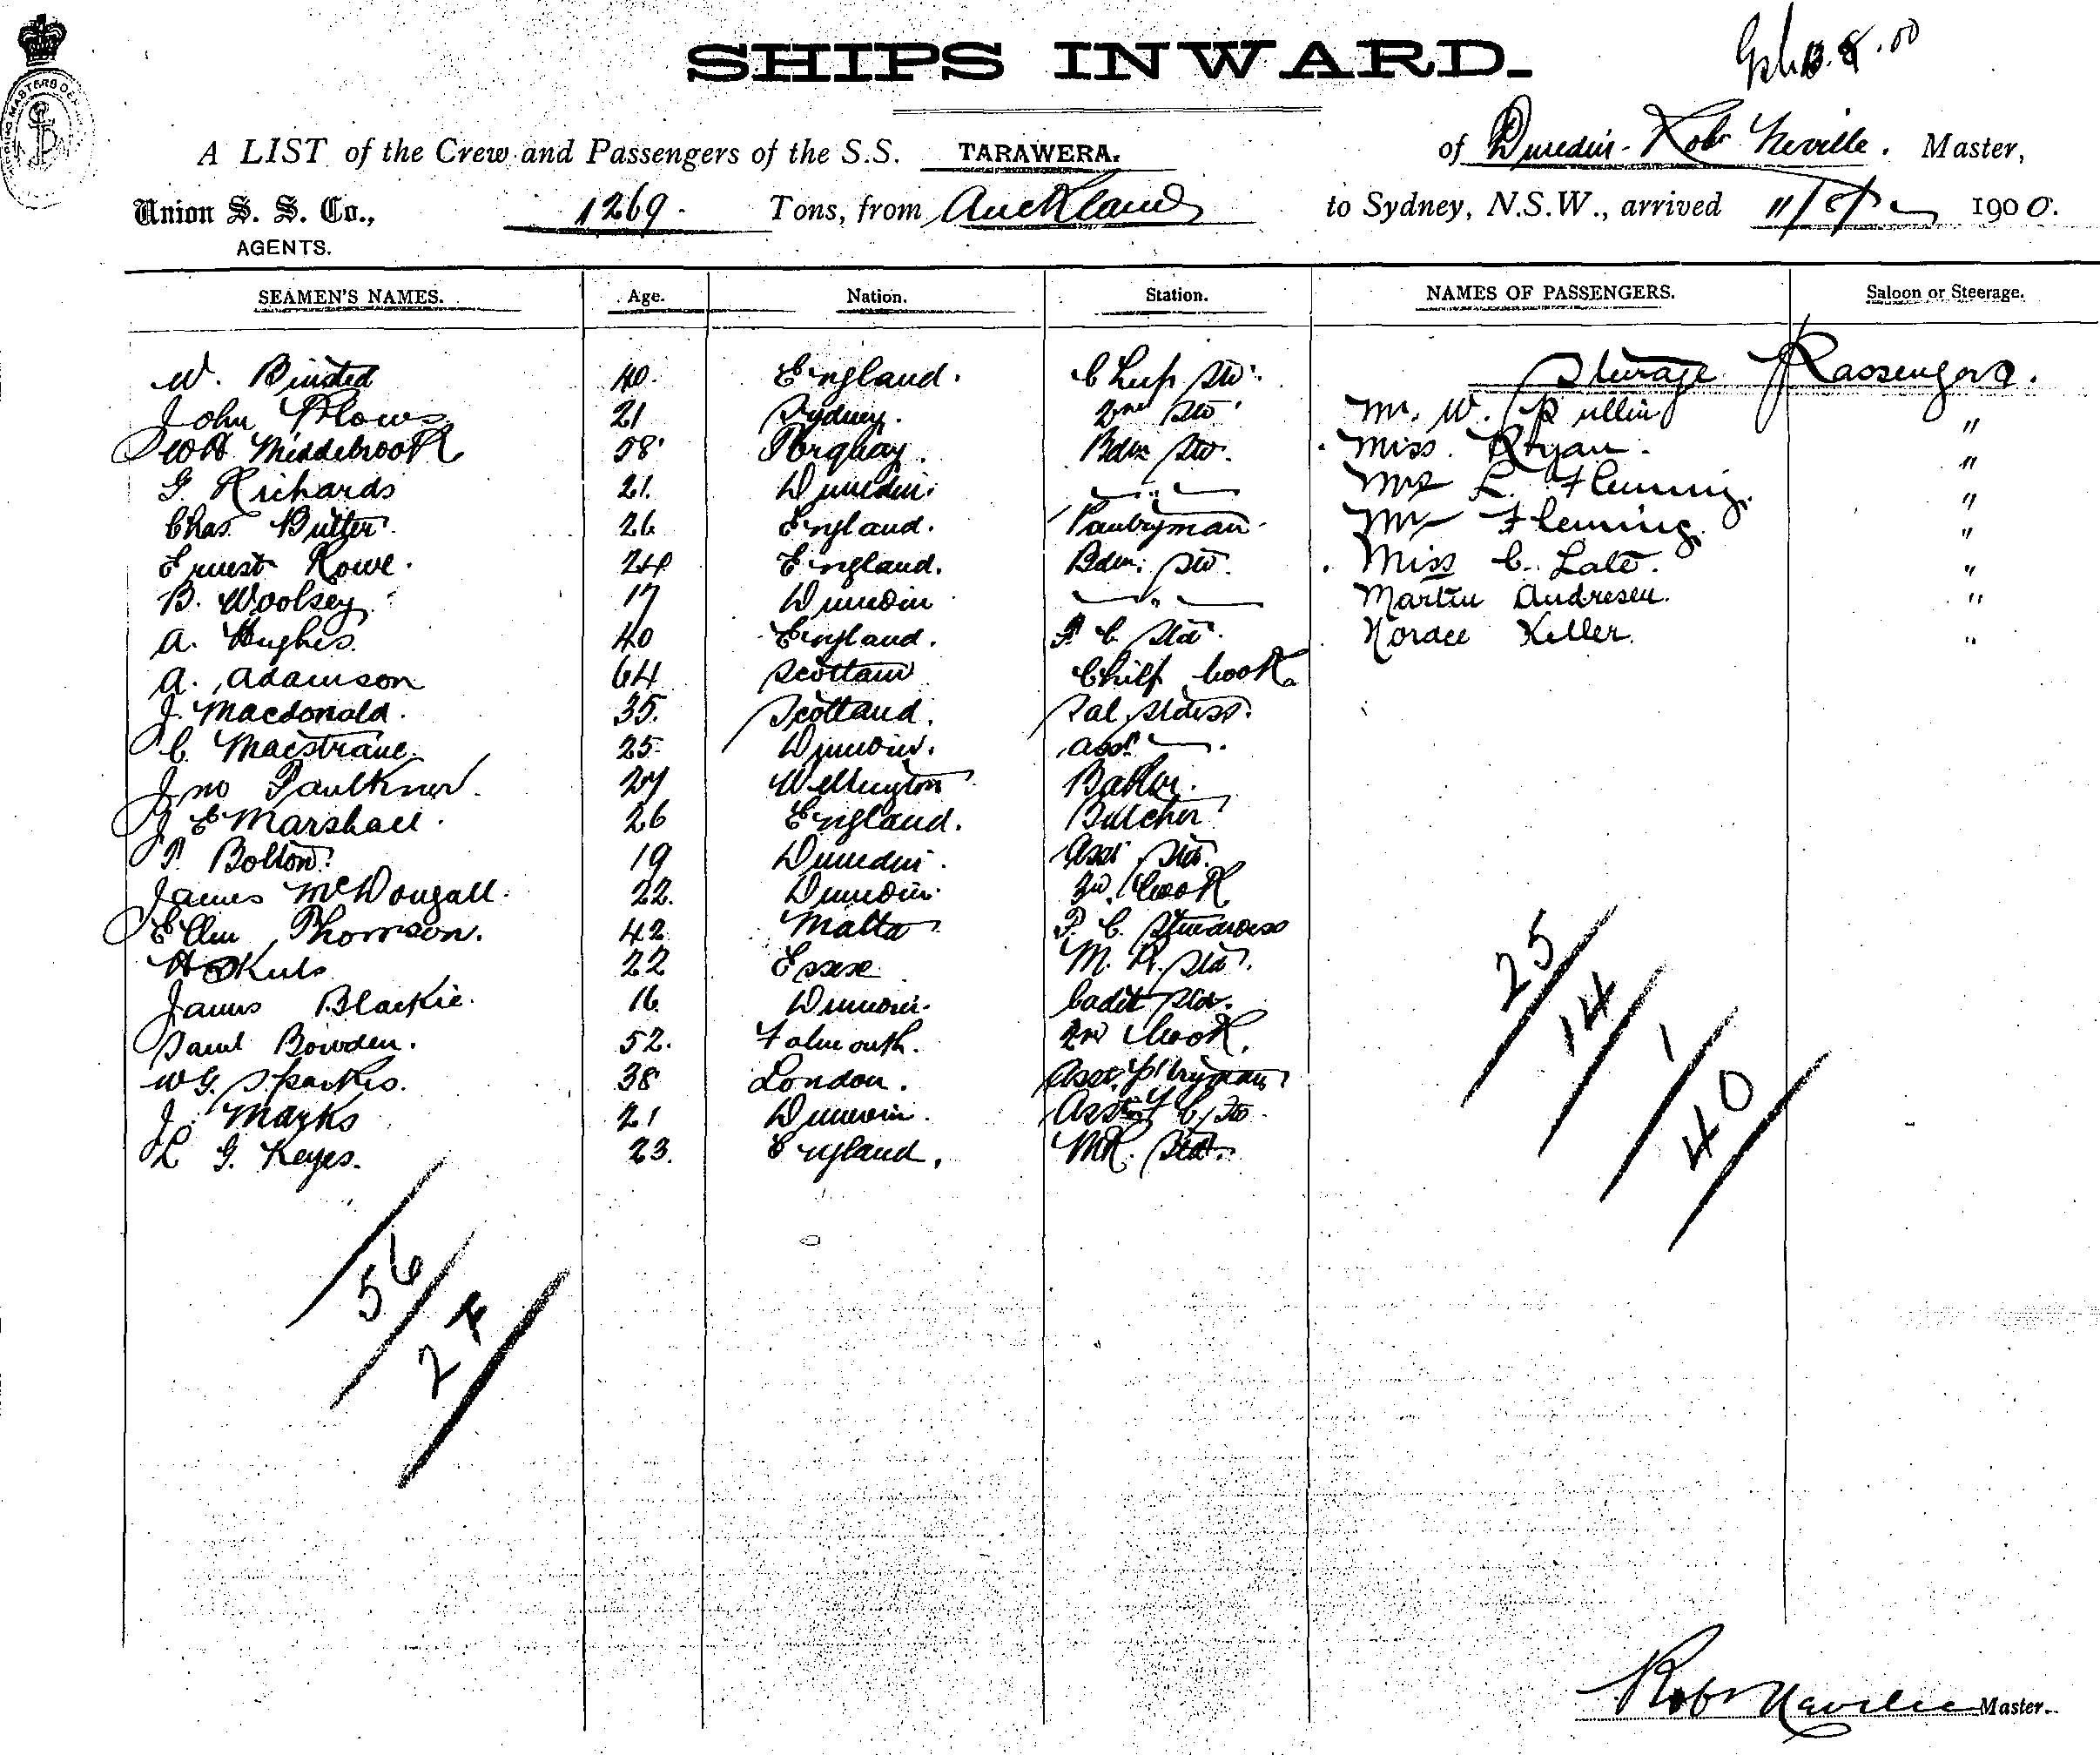 SHIPS INWARD.
A LIST of the Crew and Passengers of the S.S. TARAWERA. of Dunedin - Robt Neville. Master,
Union S. S. Co., 1269. Tons, from Auckland to Sydney, N.S.W., arrived 1900.
AGENTS.
SEAMEN'S NAMES. Age. Nation. Station. NAMES OF PASSENGERS. Saloon or Steerage.
Steerage Passengers.
W. Binsted 40. England. Chief Stw.
John Plows 21 Sydney. 2nd Stw. Mr. W. Pullin "
W H Middebrook 58 Torquay. Bdrm Stw. Miss Ryan. "
G. Richards 21. Dunedin. —"— Mrs L. Fleming. "
Chas. Butter. 26 England. Pantryman Mr Fleming. "
Ernest Rowe. 24 England. Bdrm. Stw. Miss C. Late. "
B. Woolsey 17 Dunedin —"— Martin Andresen. "
A. Hughes. 40 England. F. C. Std. Horace Keller. "
A. Adamson 64 Scotland Chief Cook
J. Macdonald. 35. Scotland. Sal. Stdess.
C. 25. Dunedin. Asst —.
Jno Faulkner. 27 Wellington Baker.
J E Marshall. 26 England. Butcher
T. Bolton. 19 Dunedin. Asst Std.
James McDougall. 22. Dunedin. 3rd Cook
Ellen Thomson. 42 Malta F. C. Stewardess
H 22 Essex M. R. Std.
James Blackie. 16. Dunedin. Cadet Std.
Saml Bowden. 52. Falmouth. 2nd Cook.
W G. Sparkes. 38 London. Asst. Ptryman
J. Marks 21 Dunedin.
L G. Keyes. 23. England. MR. Std.
25/
14/
1/
40/
56/
Robt Neville Master.